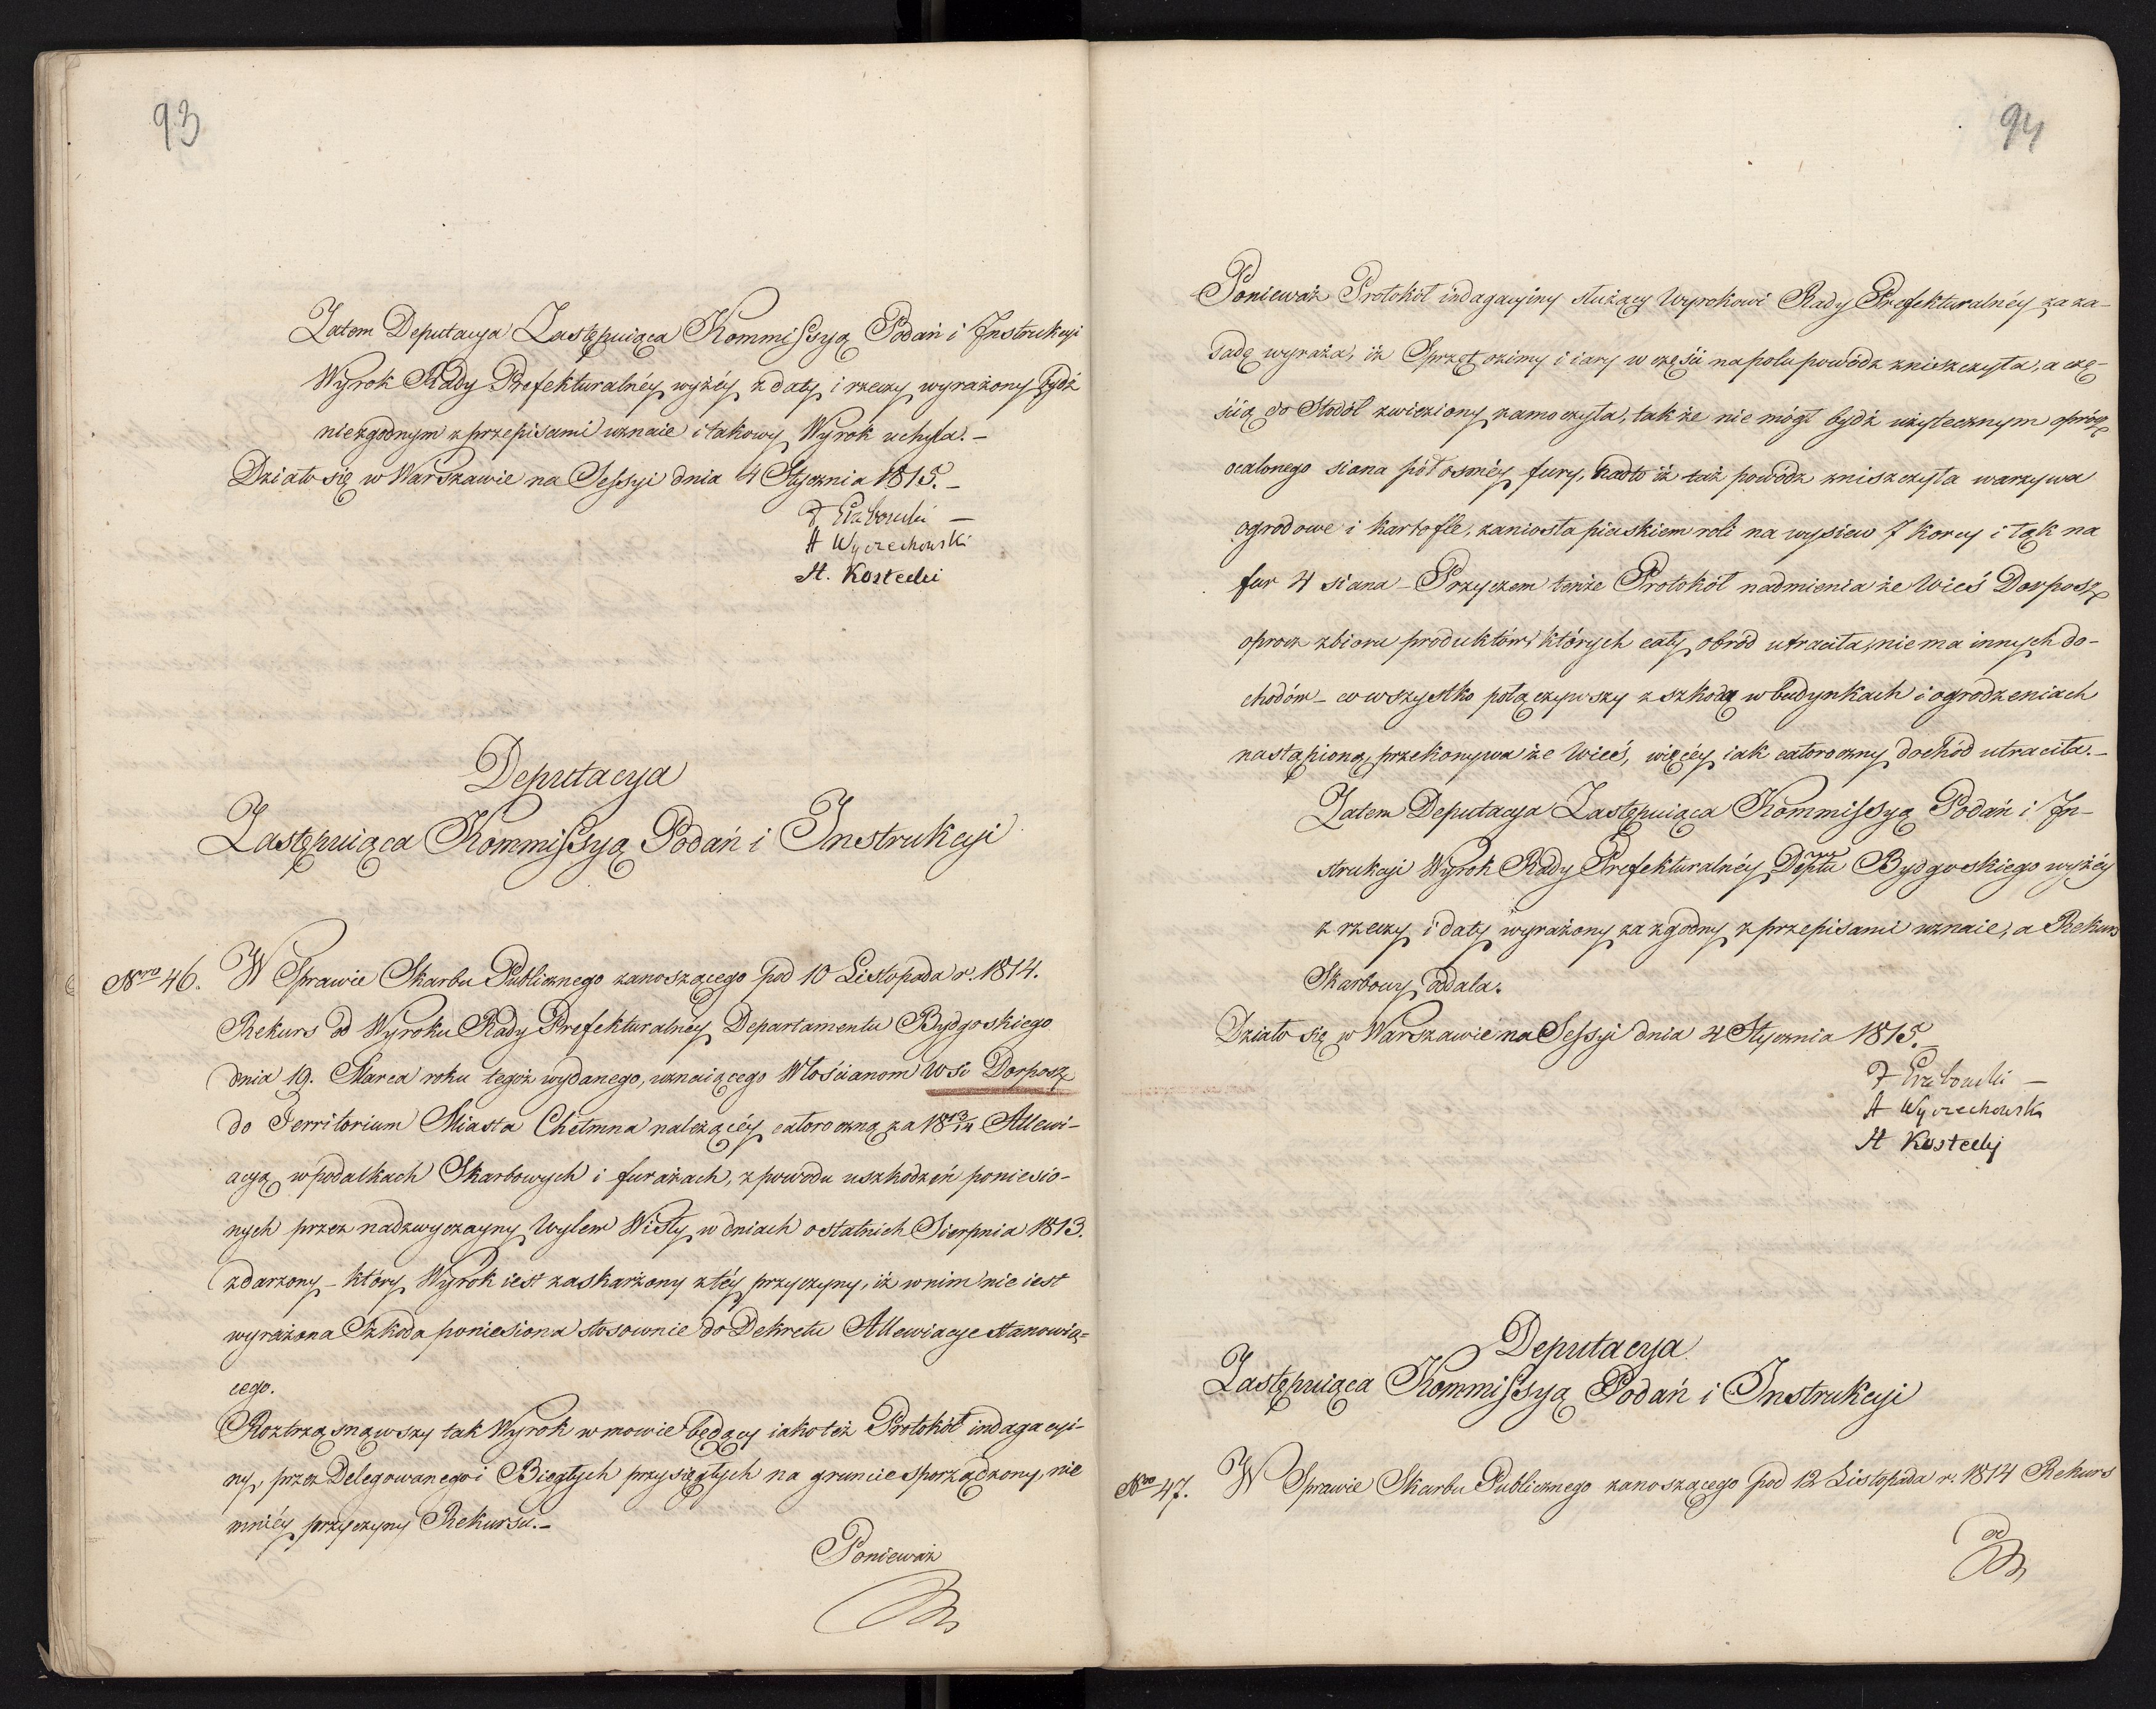 93
Zatem Deputacya Zastępuiąca Kommissyą Podań i Instrukcyi
Wyrok Rady Prefekturalnéy wyżéy z daty i rzeczy wyrażony bydź
niezgodnym z przepisami uznaie i takowy Wyrok uchyla. –
Działo się w Warszawie na Sessyi dnia 4 Stycznia 1815. –
A Wyczechowski
St. Kostecki
Deputacya
Zastępuiąca Kommissyą Podań i Instrukcyi
Nro 46. W Sprawie Skarbu Publicznego zanoszącego pod 10 Listopada r. 1814.
Rekurs od Wyroku Rady Prefekturalnéy Departamentu Bydgoskiego
dnia 19. Marca roku tegoż wydanego, uznaiącego Włościanom Wsi Dorposz
do Territorium Miasta Chełmna należącéy całoroczną za 1813/14 Allewi-
acyą w podatkach Skarbowych i furażach, z powodu uszkodzeń poniesio-
nych przez nadzwyczayny Wylew Wisły w dniach ostatnich Sierpnia 1813.
zdarzony – który Wyrok iest zaskarżony z téy przyczyny, iż w nim nie iest
wyrażona Szkoda poniesiona stosownie do Dekretu Allewiacye stanowią=
cego.
Roztrząsnąwszy tak Wyrok w mowie będący iako też Protokół indagacyi-
ny, przez Delegowanego i Biegłych przysięgłych na gruncie sporządzony, nie
mniéy przyczyny Rekursu. –
Ponieważ
94
Ponieważ Protokół indagacyiny służący Wyrokowi Rady Prefekturalnéy za za-
sadę wyraża, iż Sprzęt ozimy i iary w części na polu powódz zniszczyła, a czę-
ścią do Stodół zwieziony zamoczyła, tak że nie mógł bydź użytecznym oprócz
ocalonego siana pół osméy fury, nadto iż taż powódz zniszczyła warzywa
ogrodowe i kartofle, zaniosła piaskiem roli na wysiew 7 korcy i łąk na
fur 4 siana – Przyczem tenże Protokół nadmienia że Wieś Dorposz
oprocz zbioru produktów których cały obród utraciła, nie ma innych do-
chodów – co wszystko połączywszy z szkodą w budynkach i ogrodzeniach
nastąpioną, przekonywa że Wieś, więcéy iak całoroczny dochód utraciła. –
Zatem Deputacya Zastępuiąca Kommissyą Podań i In-
strukcyi Wyrok Rady Prefekturalnéy Deptu Bydgoskiego wyżéy
z rzeczy i daty wyrażony za zgodny z przepisami uznaie, a Rekurs
Skarbowy oddala.
Działo się w Warszawie na Sessyi dnia 4 Stycznia 1815. –
A Wyczechowski
St Kostecki
Deputacya
Zastępuiąca Kommissyą Podań i Instrukcyi
Nro 47. W Sprawie Skarbu Publicznego zanoszącego pod 12 Listopada r. 1814 Rekurs
od